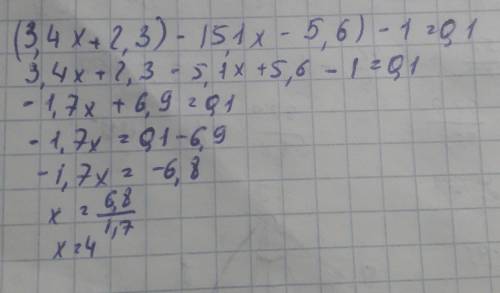 (3,4x+2,3) - (5,1x - 5,6) - 1 = 0,1
3,4x + 2,3 - 5,1x + 5,6 - 1 = 0,1
- 1,7x + 6,9 = 0,1
- 1,7x = 0,1 - 6,9
- 1,7x = -6,8
x = 6,8/1,7
x = 4